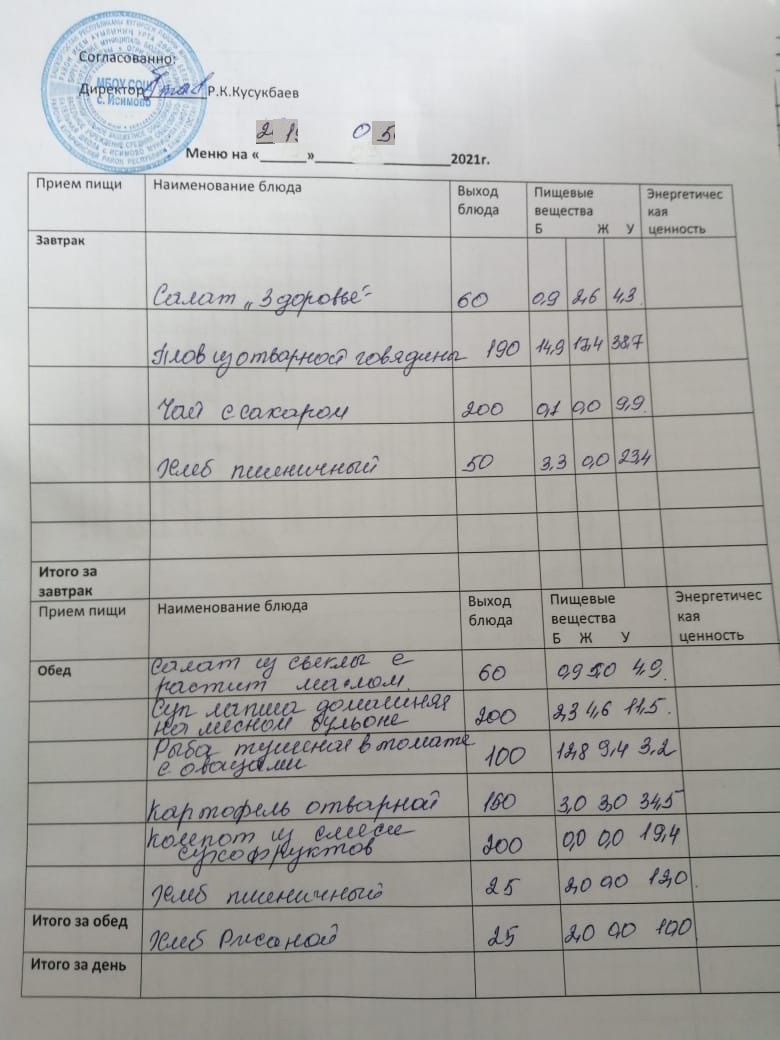 Согласованно:
МБОУ СОШ
с. Исимово
Директор Р.К.Кусукбаев
Меню на «21» 05 2021г.
Прием пищи Наименование блюда Выход блюда Пищевые вещества Б Ж У Энергетичес кая ценность
Завтрак
Салат „Здоровье" 60 0,9 2,6 4,3
Плов из отварной говядины 190 14,9 17,4 38,7
Чай с сахаром 200 0,1 0,0 9,9
Хлеб пшеничный 50 3,3 0,0 23,4
Итого за
завтрак
Прием пищи Наименование блюда Выход блюда Пищевые вещества Б Ж У Энергетичес кая ценность
Обед Салат из свеклы с
растит маслом 60 0,9 5,0 4,9
Суп лапша домашняя
на мясном бульоне 200 2,3 4,6 11,5
Рыба тушеная в томате
с овощами 100 12,8 9,4 3,2
Картофель отварной 150 3,0 3,0 34,5
Компот из смеси
сухофруктов 200 0,0 0,0 19,4
Хлеб пшеничный 25 2,0 0,0 12,0
Итого за обед Хлеб Рисаной 25 2,0 0,0 10,0
Итого за день